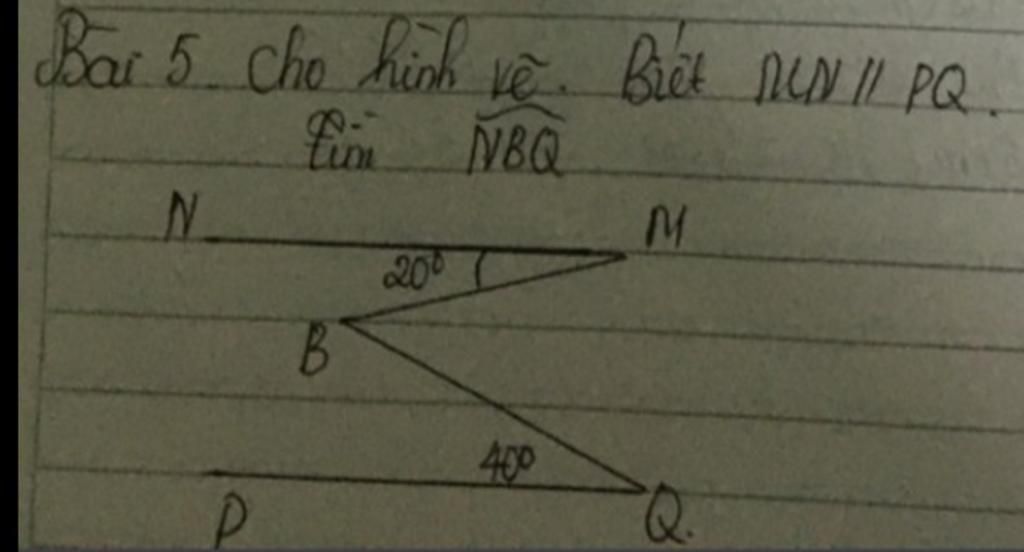 Bài 5. Cho hình vẽ. Biết MN // PQ.
Tìm NBQ
N M
20°
B
40°
P Q.